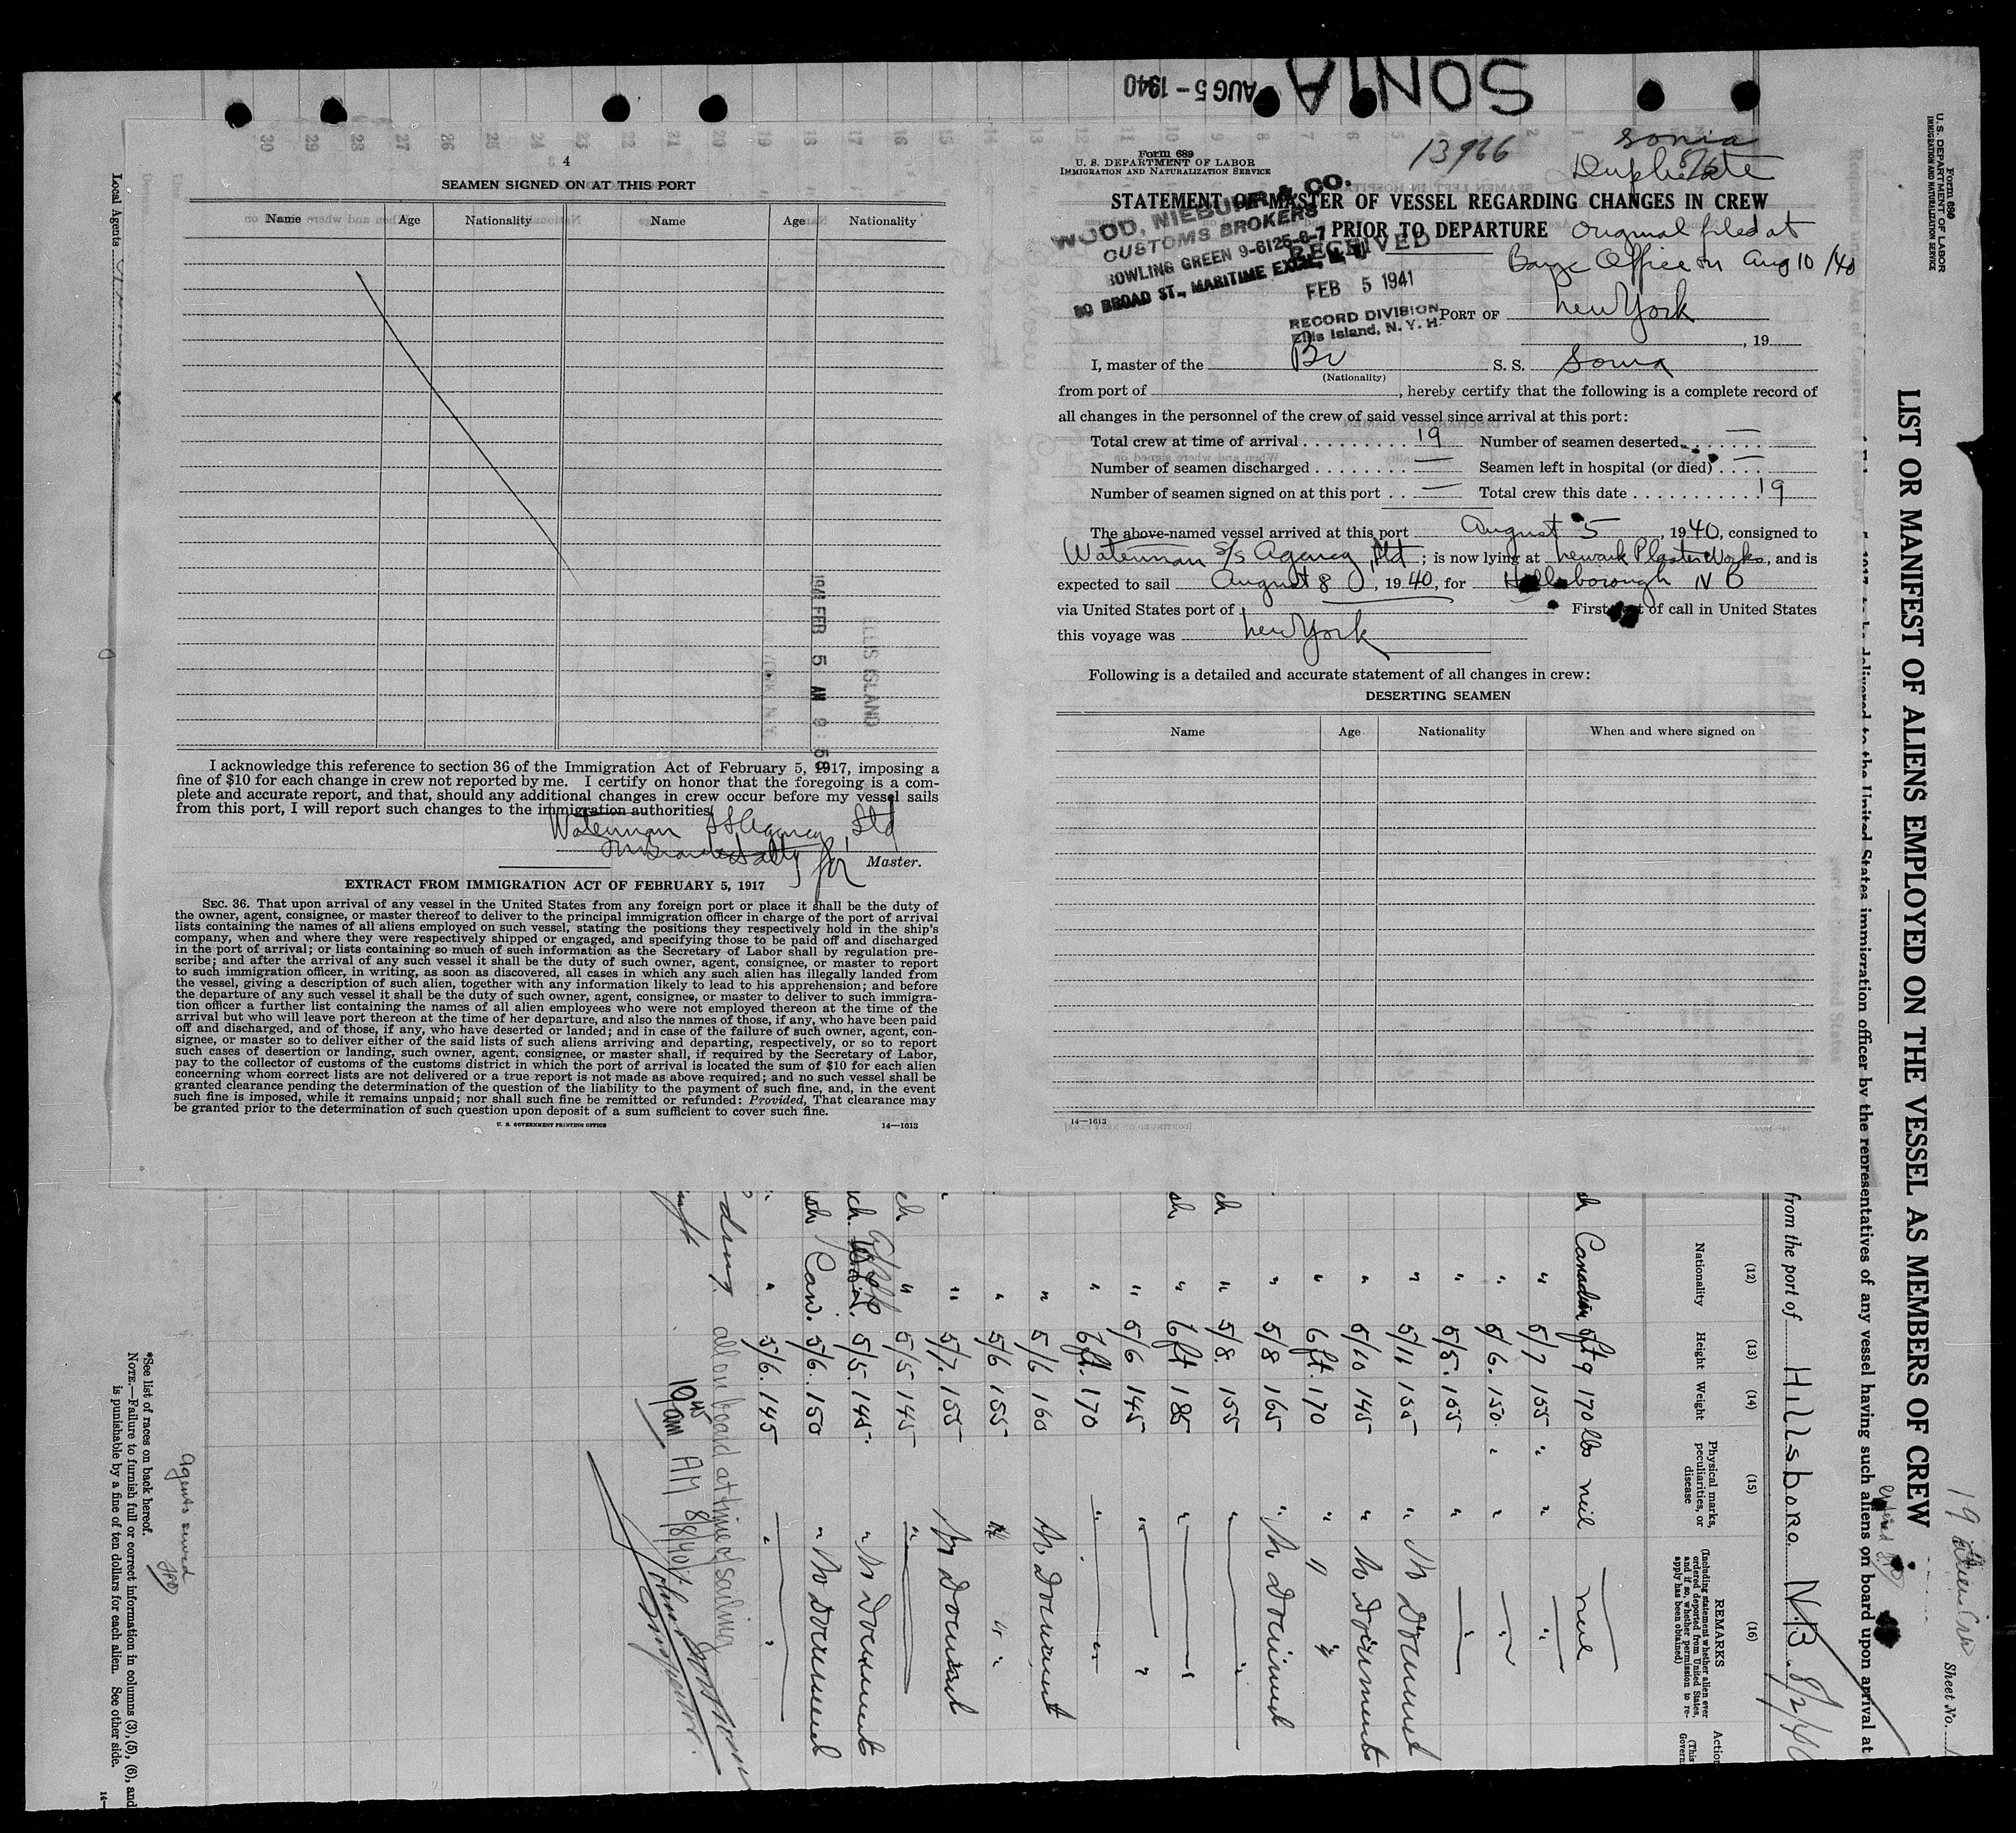 SONIA
AUG 5 - 1940
4
SEAMEN SIGNED ON AT THIS PORT
Name Age Nationality Name Age Nationality
1941 FEB 5 AM 9:58
ELLIS ISLAND
I acknowledge this reference to section 36 of the Immigration Act of February 5, 1917, imposing a
fine of $10 for each change in crew not reported by me. I certify on honor that the foregoing is a com-
plete and accurate report, and that, should any additional changes in crew occur before my vessel sails
from this port, I will report such changes to the immigration authorities.
Waterman SS Agency, Ltd
for Master.
EXTRACT FROM IMMIGRATION ACT OF FEBRUARY 5, 1917
SEC. 36. That upon arrival of any vessel in the United States from any foreign port or place it shall be the duty of
the owner, agent, consignee, or master thereof to deliver to the principal immigration officer in charge of the port of arrival
lists containing the names of all aliens employed on such vessel, stating the positions they respectively hold in the ship's
company, when and where they were respectively shipped or engaged, and specifying those to be paid off and discharged
in the port of arrival; or lists containing so much of such information as the Secretary of Labor shall by regulation pre-
scribe; and after the arrival of any such vessel it shall be the duty of such owner, agent, consignee, or master to report
to such immigration officer, in writing, as soon as discovered, all cases in which any such alien has illegally landed from
the vessel, giving a description of such alien, together with any information likely to lead to his apprehension; and before
the departure of any such vessel it shall be the duty of such owner, agent, consignee, or master to deliver to such immigra-
tion officer a further list containing the names of all alien employees who were not employed thereon at the time of the
arrival but who will leave port thereon at the time of her departure, and also the names of those, if any, who have been paid
off and discharged, and of those, if any, who have deserted or landed; and in case of the failure of such owner, agent, con-
signee, or master so to deliver either of the said lists of such aliens arriving and departing, respectively, or so to report
such cases of desertion or landing, such owner, agent, consignee, or master shall, if required by the Secretary of Labor,
pay to the collector of customs of the customs district in which the port of arrival is located the sum of $10 for each alien
concerning whom correct lists are not delivered or a true report is not made as above required; and no such vessel shall be
granted clearance pending the determination of the question of the liability to the payment of such fine, and, in the event
such fine is imposed, while it remains unpaid; nor shall such fine be remitted or refunded: Provided, That clearance may
be granted prior to the determination of such question upon deposit of a sum sufficient to cover such fine.
U. S. GOVERNMENT PRINTING OFFICE 14—1613
Form 689
U. S. DEPARTMENT OF LABOR
IMMIGRATION AND NATURALIZATION SERVICE
13966
Sonia
Duplicate
STATEMENT OF MASTER OF VESSEL REGARDING CHANGES IN CREW
PRIOR TO DEPARTURE
Original filed at
Barge Office on Aug 10/40
WOOD, NIEBUHR & CO.
CUSTOMS BROKERS
BOWLING GREEN 9-6125-6-7
80 BROAD ST., MARITIME EXCH., N. Y.
RECEIVED
FEB 5 1941
RECORD DIVISION
Ellis Island, N. Y. H.
PORT OF New York
, 19
I, master of the Br S. S. Sonia
(Nationality)
from port of , hereby certify that the following is a complete record of
all changes in the personnel of the crew of said vessel since arrival at this port:
Total crew at time of arrival 19 Number of seamen deserted —
Number of seamen discharged — Seamen left in hospital (or died) —
Number of seamen signed on at this port — Total crew this date 19
The above-named vessel arrived at this port August 5, 1940, consigned to
Waterman S/S Agency, Ltd; is now lying at Newark Plaster Works, and is
expected to sail August 8, 1940, for Hillsborough NB
via United States port of First port of call in United States
this voyage was New York
Following is a detailed and accurate statement of all changes in crew:
DESERTING SEAMEN
Name Age Nationality When and where signed on
14—1613
Form 680
U. S. DEPARTMENT OF LABOR
IMMIGRATION AND NATURALIZATION SERVICE
Sheet No.
LIST OR MANIFEST OF ALIENS EMPLOYED ON THE VESSEL AS MEMBERS OF CREW
19
to be delivered to the United States immigration officer by the representatives of any vessel having such aliens on board upon arrival at
from the port of Hillsboro N.B. 8/2/40
(12) (13) (14) (15) (16)
Nationality Height Weight Physical marks, peculiarities, or disease REMARKS
(Including statement whether alien ever ordered deported from United States, and if so, whether permission to re-apply has been obtained)
Canadian 5ft 9 170 lbs neil neil
" 5/7 155 " "
" 5/6. 150. " "
" 5/5. 155 " "
" 5/11 155 " No Document
" 5/10 145 " No Document
" 6 ft. 170 " "
" 5/8 165 " No Document
" 5/8. 155 " "
" 6 ft 185 " "
" 5/6 145 " "
" 6 ft. 170 " "
" 5/6 160 No Document
" 5/6 155 "
" 5/7. 155 No Document
" 5/5 145 "
5/5. 145. " No Document
Can. 5/6. 150 " No Document
" 5/6. 145 " "
all on board at time of sailing
10 45 am AM 8/8/40
Inspector.
Local Agents
Agents served
*See list of races on back hereof.
NOTE.—Failure to furnish full or correct information in columns (3), (5), (6), and
is punishable by a fine of ten dollars for each alien. See other side.
14—